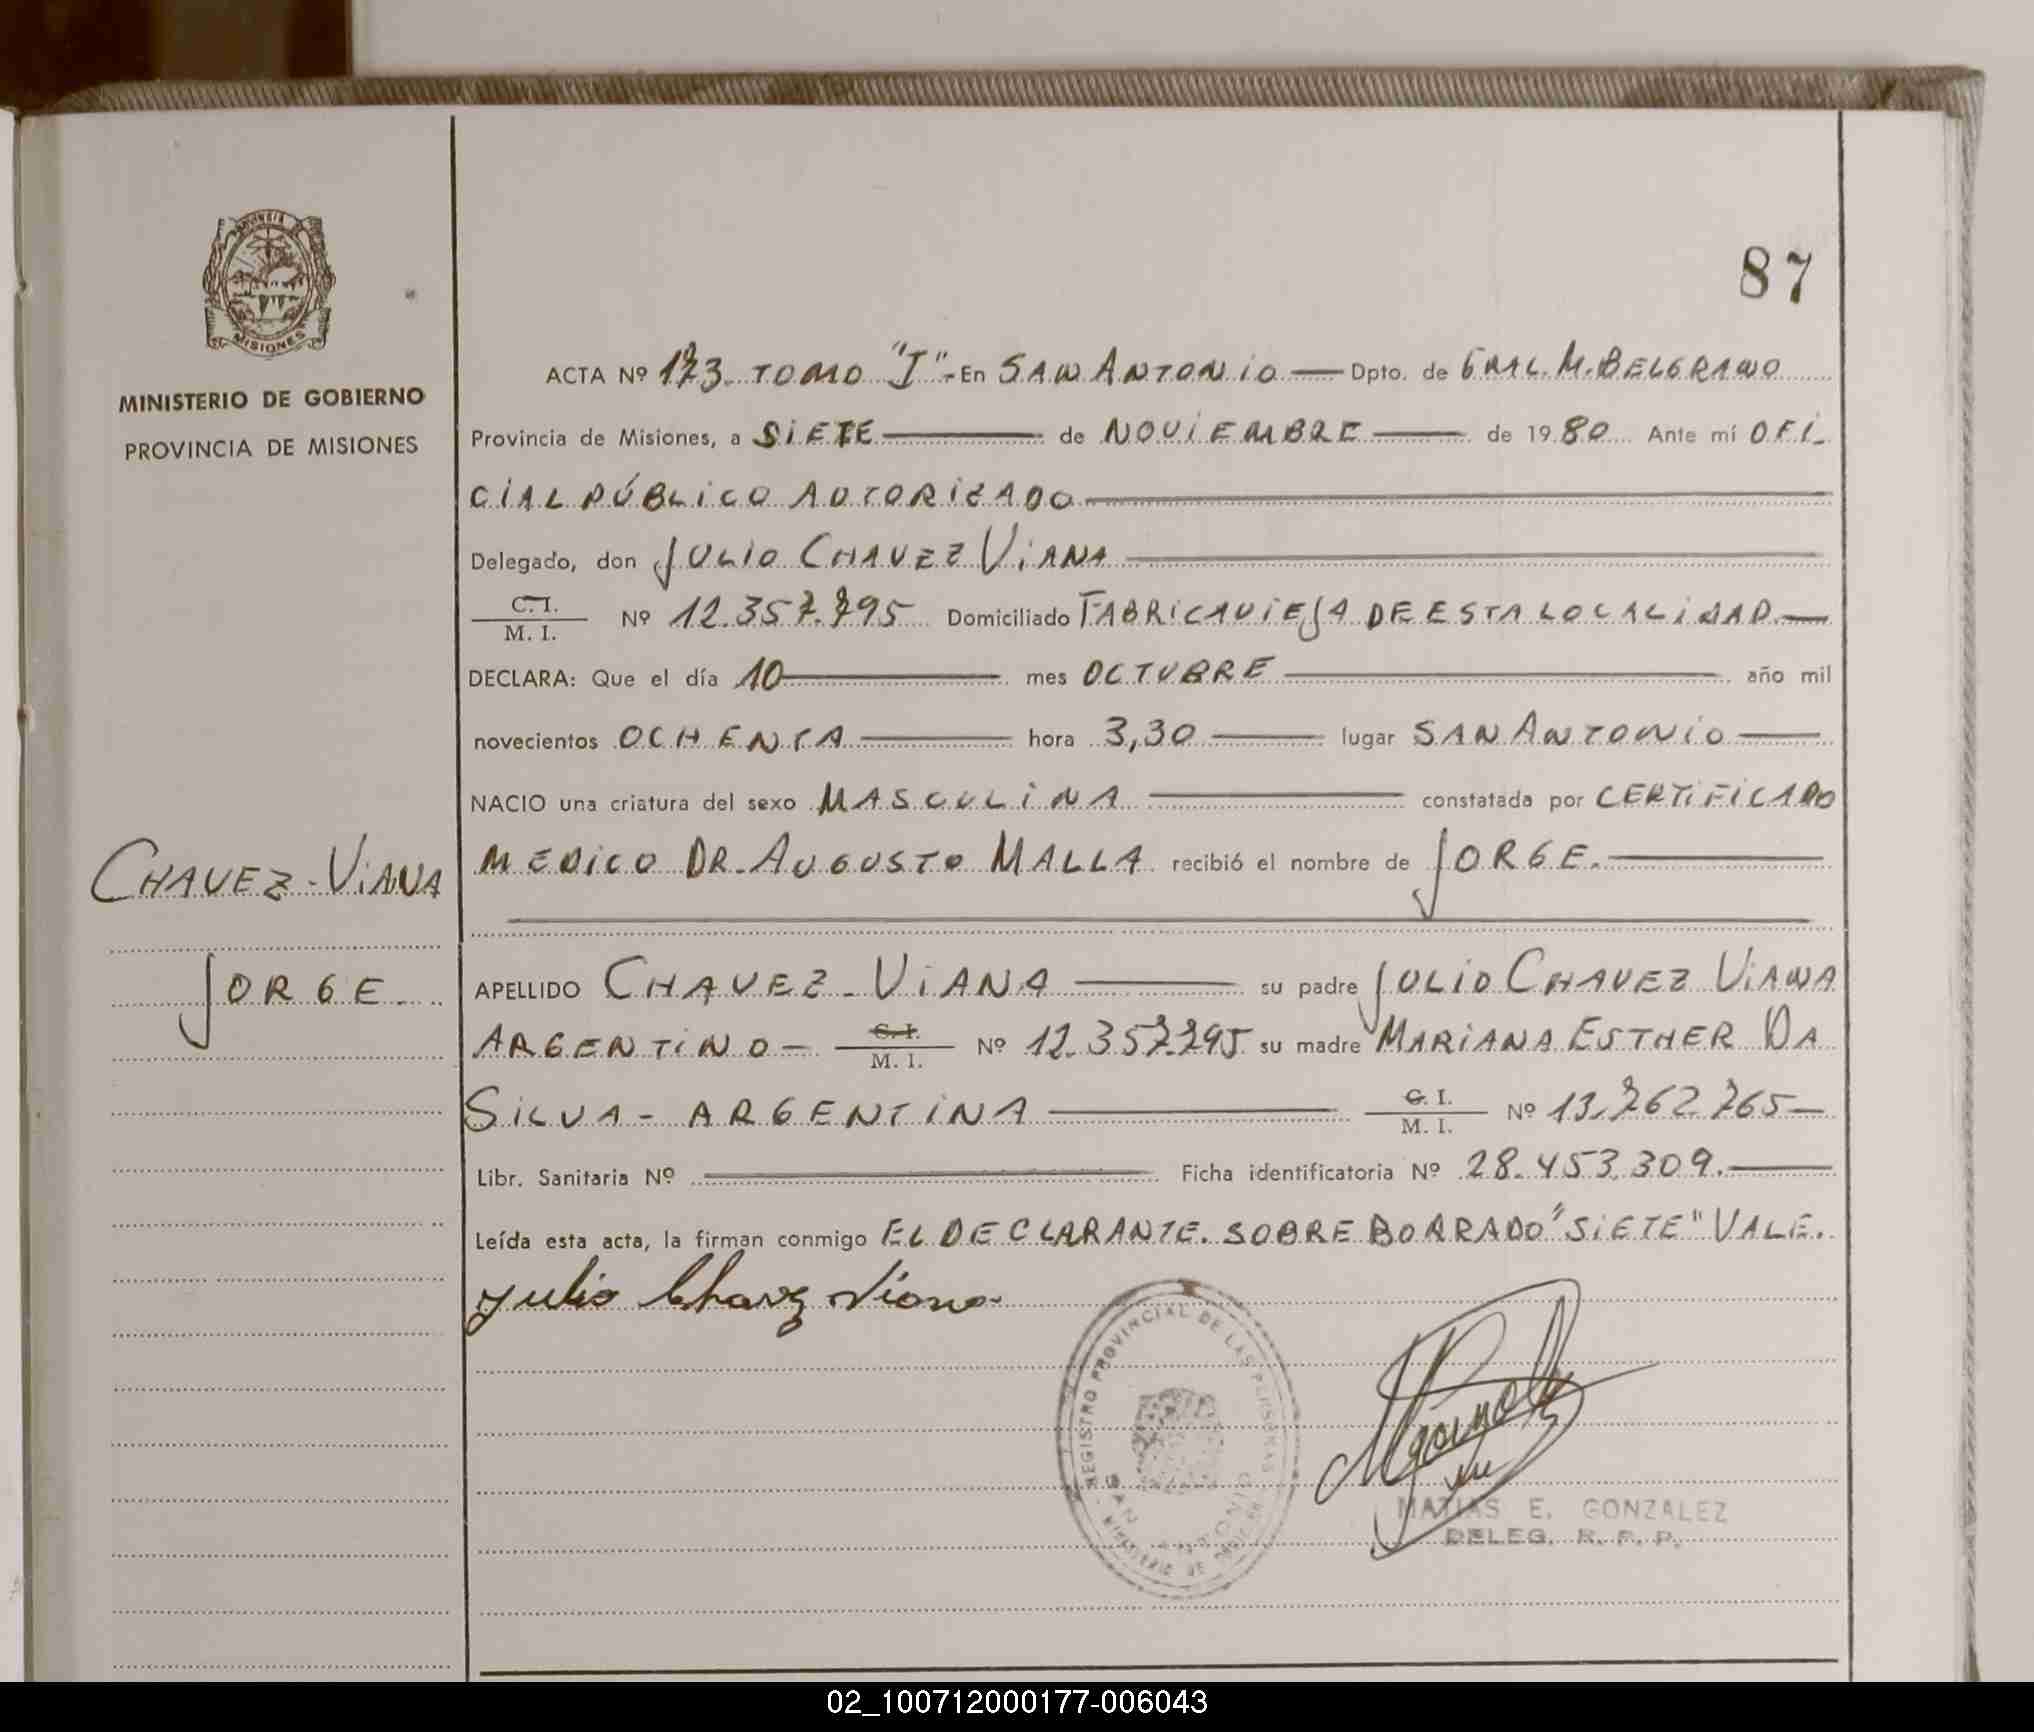 87
MISIONES
MINISTERIO DE GOBIERNO
PROVINCIA DE MISIONES
CHAVEZ-VIANA
JORGE
ACTA Nº 173 TOMO "I"- En SAN ANTONIO Dpto. de GRAL. M. BELGRANO
Provincia de Misiones, a SIETE de NOVIEMBRE de 1980 Ante mí OFI-
CIAL PÚBLICO AUTORIZADO
Delegado, don JULIO CHAVEZ VIANA
C. I.
M. I. Nº 12.357.795 Domiciliado FABRICA VIEJA DE ESTA LOCALIDAD
DECLARA: Que el día 10 mes OCTUBRE año mil
novecientos OCHENTA hora 3,30 lugar SAN ANTONIO
NACIO una criatura del sexo MASCULINA constatada por CERTIFICADO
MEDICO DR. AUGUSTO MALLA recibió el nombre de JORGE.
APELLIDO CHAVEZ-VIANA su padre JULIO CHAVEZ VIANA
ARGENTINO- C. I.
M. I. Nº 12.357.795 su madre MARIANA ESTHER DA
SILVA- ARGENTINA C. I.
M. I. Nº 13.762.765
Libr. Sanitaria Nº Ficha identificatoria Nº 28.453.309.
Leída esta acta, la firman conmigo EL DECLARANTE. SOBRE BORRADO "SIETE" VALE.
Julio Chavez Viana
REGISTRO PROVINCIAL DE LAS PERSONAS
SAN ANTONIO
MATIAS E. GONZALEZ
DELEG. R. P. P.
02_100712000177-006043